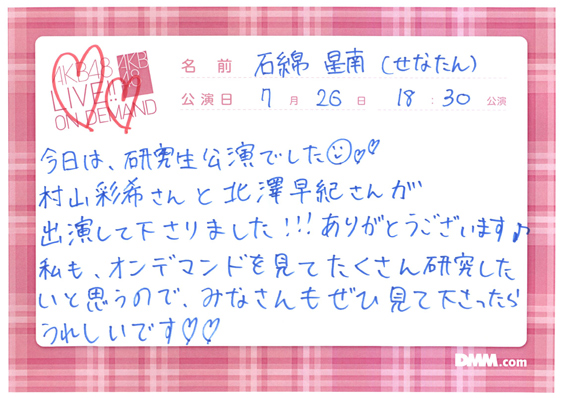 AKB48
LIVE!!
ON DEMAND
AKB
48
名前 石綿 星南 (せなたん)
公演日 7月26日 18:30公演
今日は、研究生公演でした☺♡♡
村山彩希さんと北澤早紀さんが
出演して下さりました!!!ありがとうございます♪
私も、オンデマンドを見てたくさん研究した
いと思うので、みなさんもぜひ見て下さったら
うれしいです♡♡
DMM.com